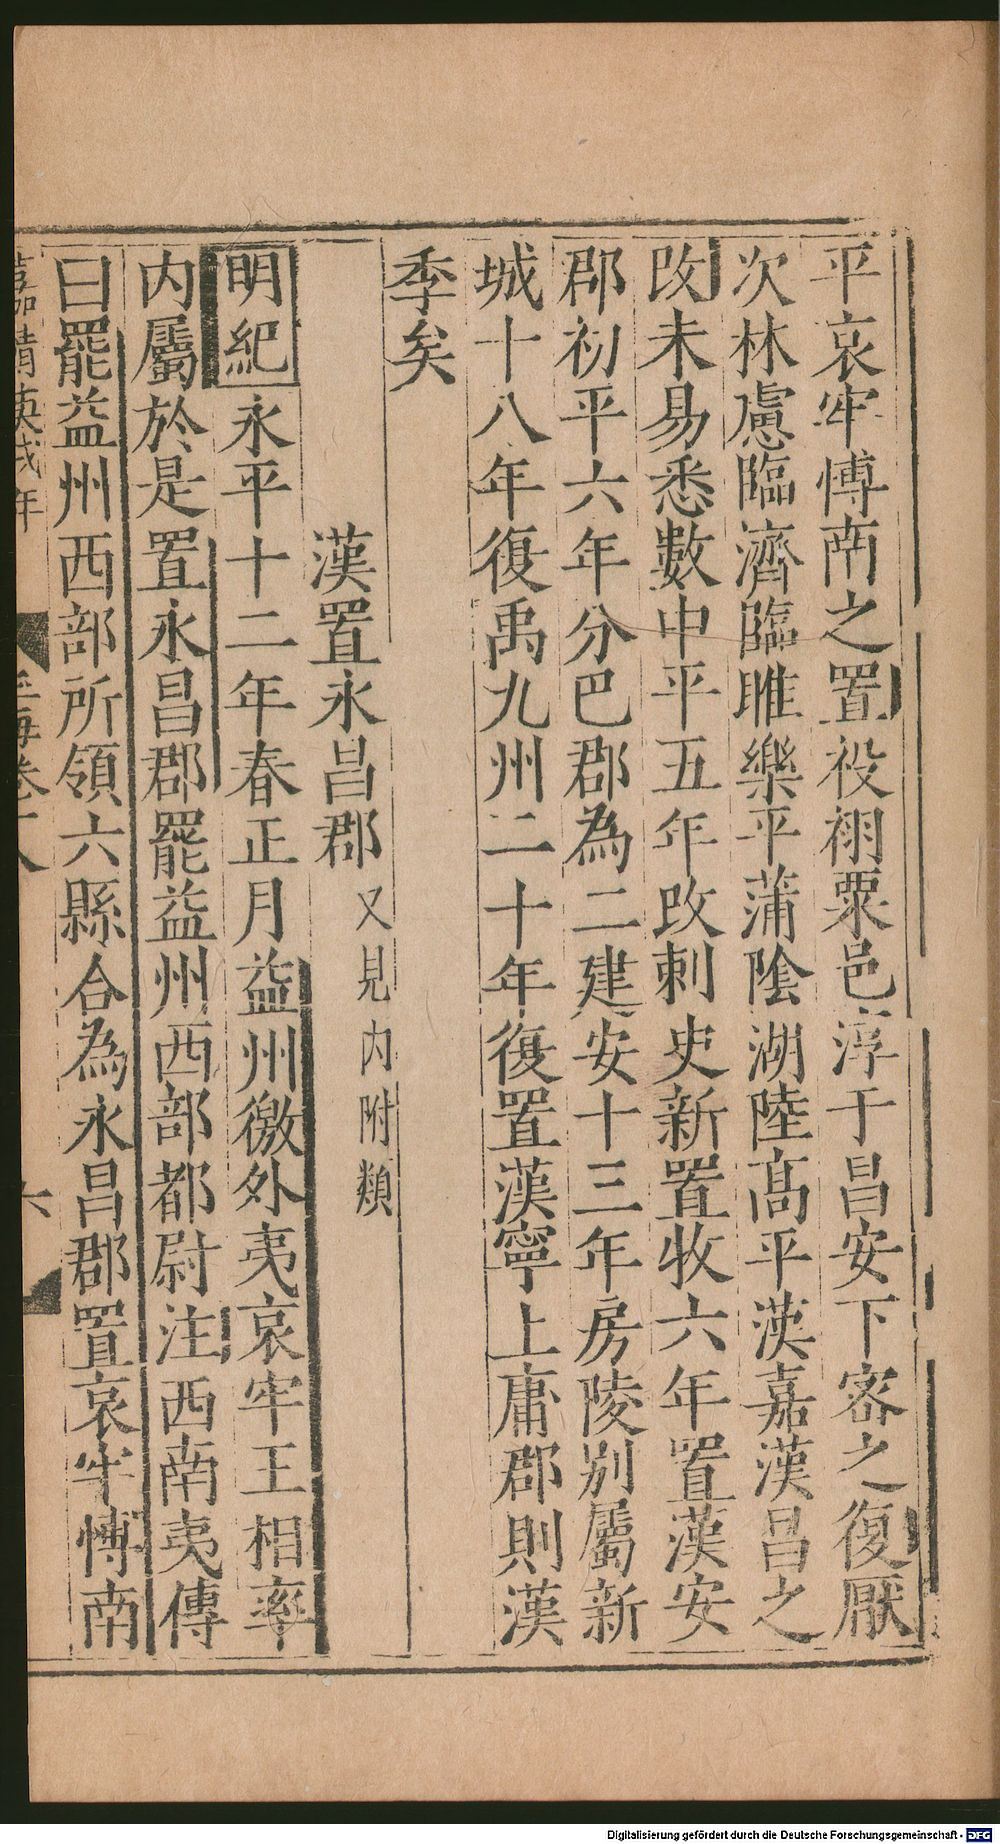 平哀牢博南之置祋祤粟邑淳于昌安下密之復厭
次林慮臨濟臨睢樂平蒲陰湖陸高平漢嘉漢昌之
改未易悉數中平五年改刺史新置牧六年置漢安
郡初平六年分巴郡為二建安十三年房陵別屬新
城十八年復禹九州二十年復置漢寧上庸郡則漢
季矣
漢置永昌郡又見內附類
明紀永平十二年春正月益州徼外夷哀牢王相率
內屬於是置永昌郡罷益州西部都尉注西南夷傳
曰罷益州西部所領六縣合為永昌郡置哀牢博南
嘉靖 戌年
玉海卷十八
六
Digitalisierung gefördert durch die Deutsche Forschungsgemeinschaft - DFG